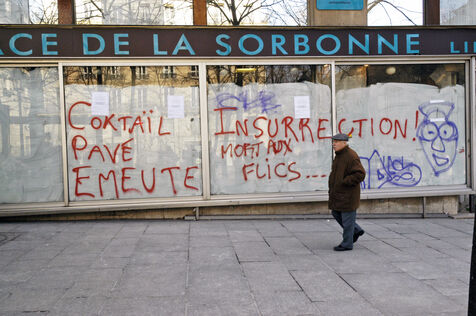 ACE DE LA SORBONNE LI
COKTAÏL
PAVÉ
EMEUTE
INSURRECTION!
MORT AUX
FLICS...